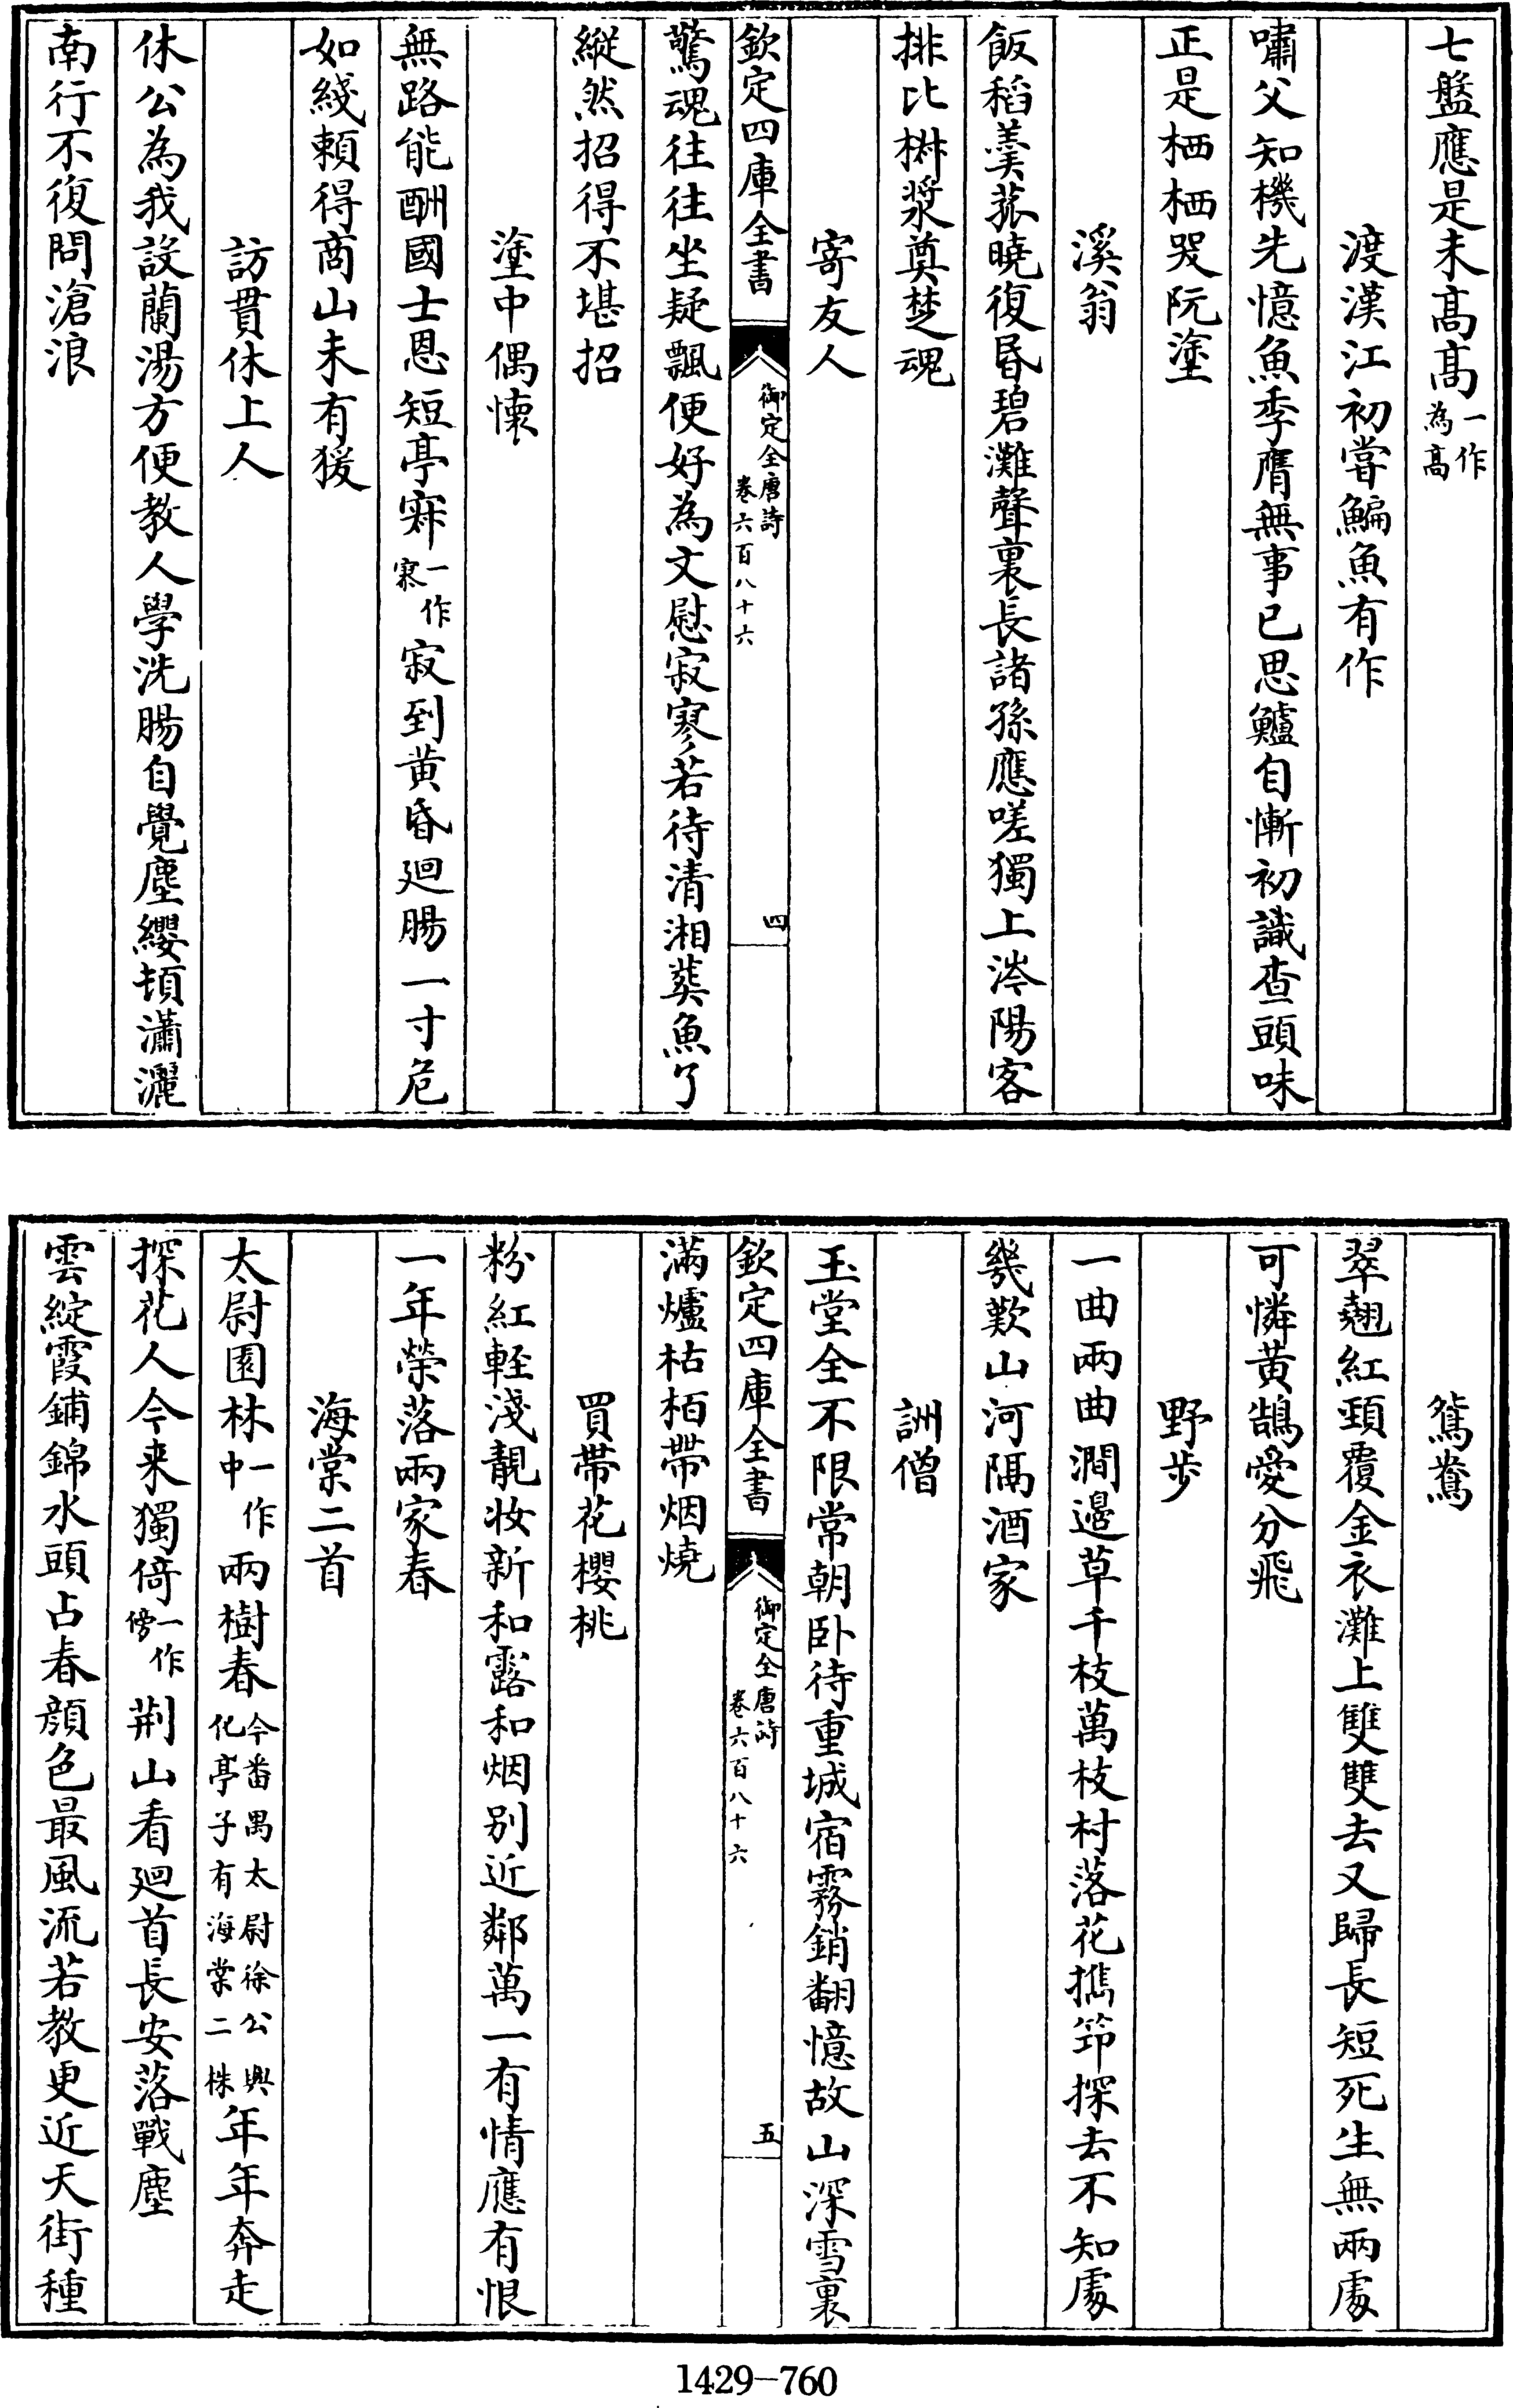 七盤應是未髙髙一作為髙
渡漢江初嘗鯿魚有作
嘯父知機先憶魚季膺無事已思鱸自慚初識查頭味
正是栖栖哭阮塗
溪翁
飯稻羹菰曉復昬碧灘聲裏長諸孫應嗟獨上涔陽客
排比椒漿奠楚魂
寄友人
欽定四庫全書
御定全唐詩
卷六百八十六
四
驚魂往往坐疑飄便好為文慰寂寥若待清湘葬魚了
縱然招得不堪招
塗中偶懷
無路能酬國士恩短亭寂一作寥寂到黄昏廻腸一寸危
如綫賴得商山未有猨
訪貫休上人
休公為我設蘭湯方便教人學洗腸自覺塵纓頓瀟灑
南行不復問滄浪
鴛鴦
翠翹紅頸覆金衣灘上雙雙去又歸長短死生無兩處
可憐黄鵠愛分飛
野步
一曲兩曲澗邊草千枝萬枝村落花攜筇探去不知處
幾歎山河隔酒家
詶僧
玉堂全不限常朝卧待重城宿霧銷翻憶故山深雪裏
欽定四庫全書
御定全唐詩
卷六百八十六
五
滿爐枯栢帶烟燒
買帶花櫻桃
粉紅輕淺靚妝新和露和烟别近鄰萬一有情應有恨
一年榮落兩家春
海棠二首
太尉園林一作中兩樹春今番禺太尉徐公與化亭子有海棠二株年年奔走
探花人今来獨倚一作傍荆山看廻首長安落戰塵
雲綻霞鋪錦水頭占春顔色最風流若教更近天街種
1429-760